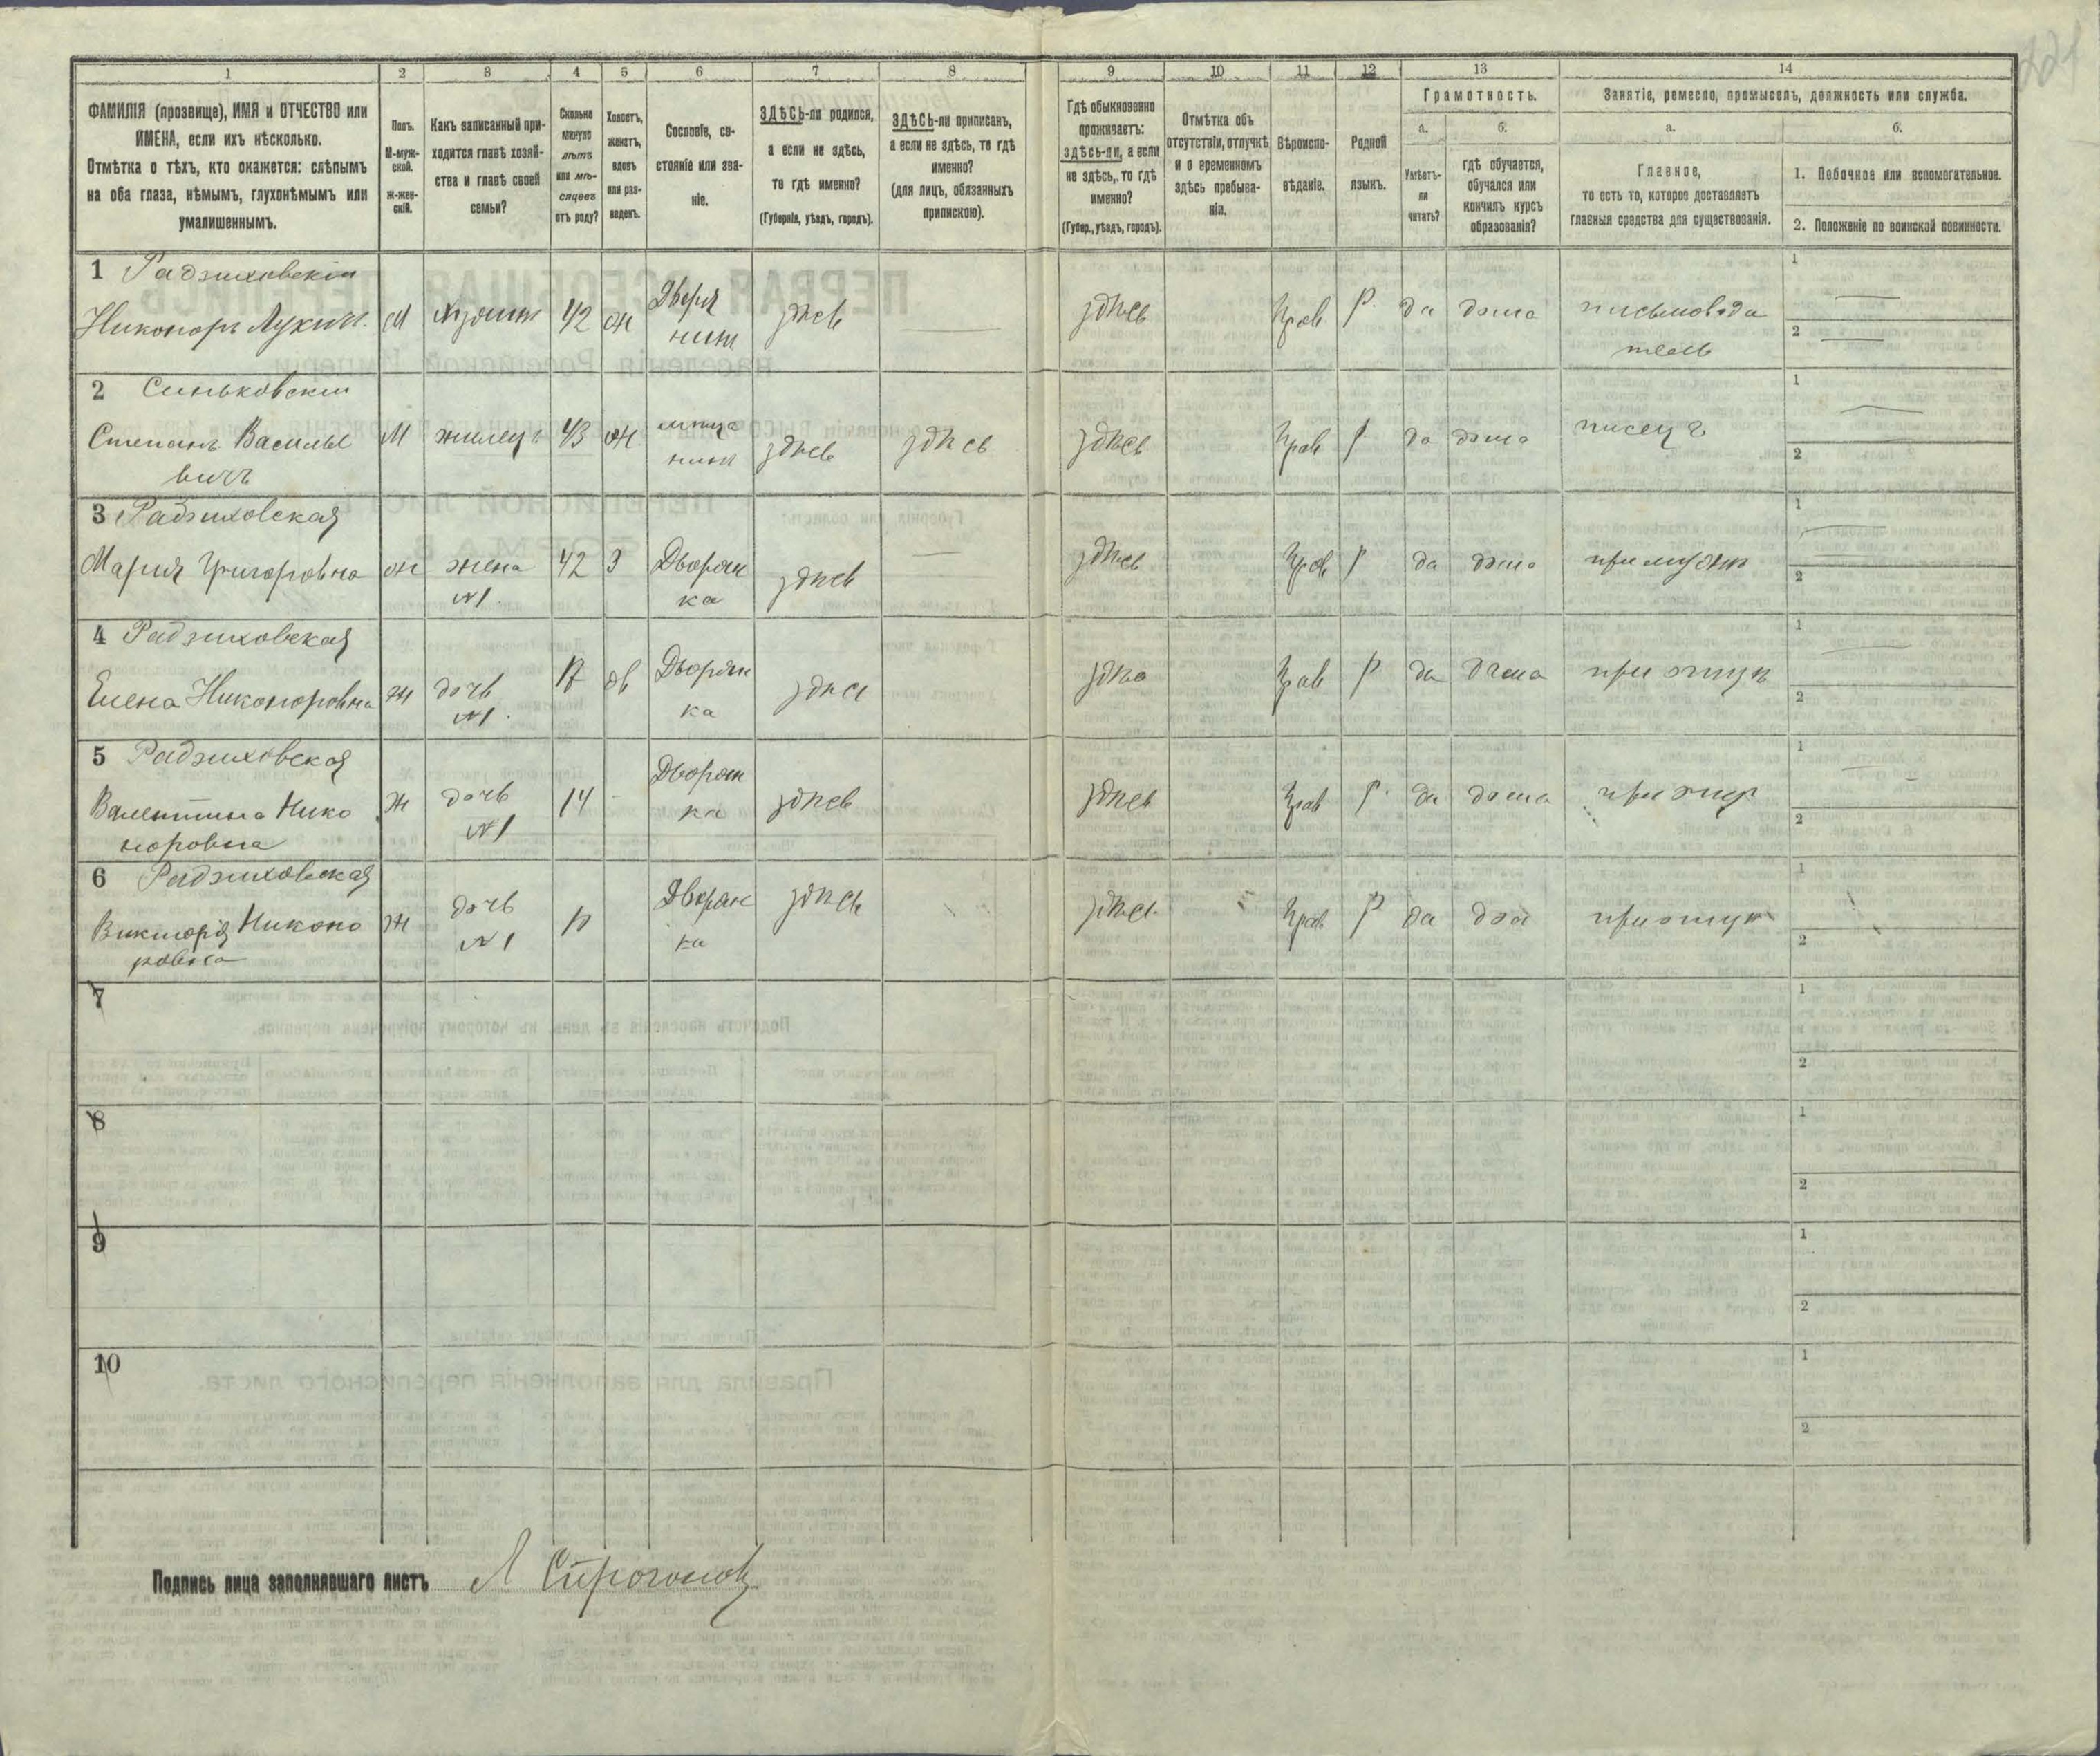 221
1 2 3 4 5 6 7 8 9 10 11 12 13 14
ФАМИЛІЯ (прозвище), ИМЯ и ОТЧЕСТВО или
ИМЕНА, если ихъ нѣсколько.
Отмѣтка о тѣхъ, кто окажется: слѣпымъ
на оба глаза, нѣмымъ, глухонѣмымъ или
умалишеннымъ.
Полъ.
М-муж-
ской.
Ж-жен-
скій.
Какъ записанный при-
ходится главѣ хозяй-
ства и главѣ своей
семьи?
Сколько
минуло
лѣтъ
или мѣ-
сяцевъ
отъ роду?
Холостъ,
женатъ,
вдовъ
или раз-
веденъ.
Сословіе, со-
стояніе или зва-
ніе.
ЗДѢСЬ-ли родился,
а если не здѣсь,
то гдѣ именно?
(Губернія, уѣздъ, городъ).
ЗДѢСЬ-ли приписанъ,
а если не здѣсь, то гдѣ
именно?
(для лицъ, обязанныхъ
припискою).
Гдѣ обыкновенно
проживаетъ:
здѣсь-ли, а если
не здѣсь, то гдѣ
именно?
(Губер., уѣздъ, городъ).
Отмѣтка объ
отсутствіи, отлучкѣ
и о временномъ
здѣсь пребыва-
ніи.
Вѣроиспо-
вѣданіе.
Родной
языкъ.
Грамотность.
а.
Умѣетъ-
ли
читать?
б.
гдѣ обучается,
обучался или
кончилъ курсъ
образованія?
Занятіе, ремесло, промыселъ, должность или служба.
а.
Главное,
то есть то, которое доставляетъ
главныя средства для существованія.
б.
1. Побочное или вспомогательное.
2. Положеніе по воинской повинности.
1 Радзиховскій
Никоноръ Лукич. М хозяинъ 42 ж Дворя здѣсь — здѣсь Прав Р. да дома письмовода 1 —
нинъ тель 2 —
2 Синьковскій
Степанъ Василье М жилецъ 43 ж мѣща здѣсь здѣсь здѣсь Прав Р да дома писецъ 1 —
вичъ нинъ 2 —
3 Радзиховская
Мария Григоровна ж жена 42 З Дворян здѣсь — здѣсь Прав Р да дома при мужѣ 1 —
№1 ка 2 —
4 Радзиховская
Елена Никоноровна ж дочь 17 дв Дворян здѣсь здѣсь Прав Р да дома при отцѣ 1 —
№1. ка 2
5 Радзиховская
Валентина Нико ж дочь 14 - Дворян здѣсь здѣсь Прав Р. да дома при отцѣ 1 —
норовна №1 ка 2
6 Радзиховская
Викторія Никоно ж дочь Дворян здѣсь здѣсь Прав Р да дома при отцѣ 1
ровна №1 ка 2
7 1
2
8 1
2
9 1
2
10 1
2
Подпись лица заполнявшаго листъ Л Строгонов